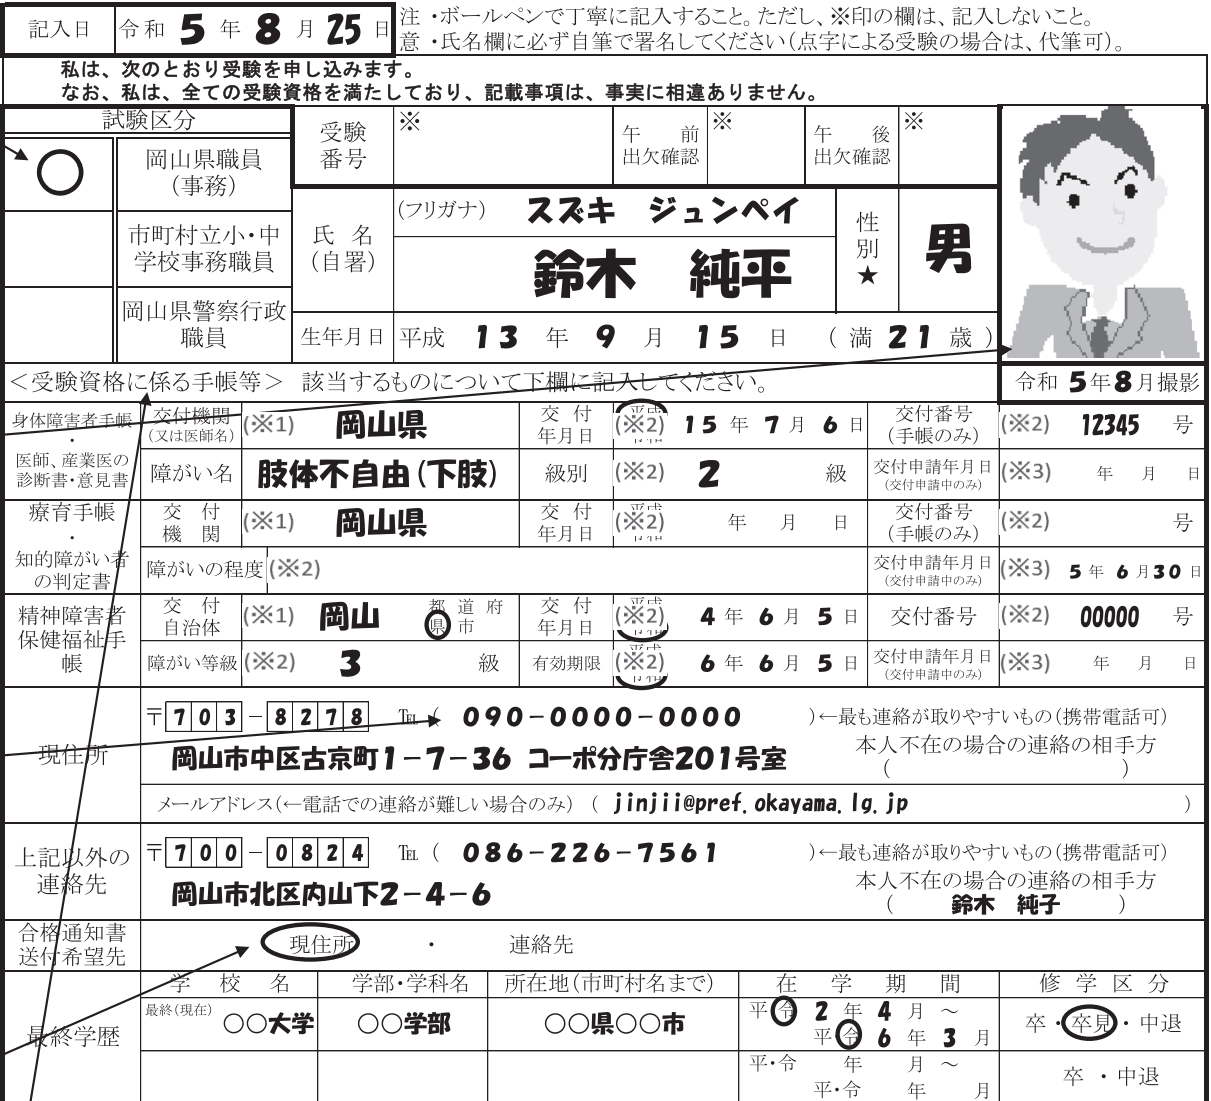 記入日 令和 5 年 8 月 25 日
注 ・ボールペンで丁寧に記入すること。ただし、※印の欄は、記入しないこと。
意 ・氏名欄に必ず自筆で署名してください(点字による受験の場合は、代筆可)。
私は、次のとおり受験を申し込みます。
なお、私は、全ての受験資格を満たしており、記載事項は、事実に相違ありません。
試験区分
○ 岡山県職員(事務)
市町村立小・中学校事務職員
岡山県警察行政職員
受験番号 ※ 午前出欠確認 ※ 午後出欠確認 ※
氏名(自署) (フリガナ) スズキ ジュンペイ
鈴木 純平
性別★ 男
生年月日 平成 13 年 9 月 15 日 (満 21 歳)
令和 5年8月撮影
<受験資格に係る手帳等> 該当するものについて下欄に記入してください。
身体障害者手帳・医師、産業医の診断書・意見書
交付機関(又は医師名) (※1) 岡山県 交付年月日 (※2) 15 年 7 月 6 日 交付番号(手帳のみ) (※2) 12345 号
障がい名 肢体不自由(下肢) 級別 (※2) 2 級 交付申請年月日(交付申請中のみ) (※3) 年 月 日
療育手帳・知的障がい者の判定書
交付機関 (※1) 岡山県 交付年月日 (※2) 年 月 日 交付番号(手帳のみ) (※2) 号
障がいの程度 (※2) 交付申請年月日(交付申請中のみ) (※3) 5 年 6 月 30 日
精神障害者保健福祉手帳
交付自治体 (※1) 岡山 都道府県市 交付年月日 (※2) 4 年 6 月 5 日 交付番号 (※2) 00000 号
障がい等級 (※2) 3 級 有効期限 (※2) 6 年 6 月 5 日 交付申請年月日(交付申請中のみ) (※3) 年 月 日
現住所
〒703-8278 ℡( 090-0000-0000 )←最も連絡が取りやすいもの(携帯電話可)
岡山市中区古京町1-7-36 コーポ分庁舎201号室
本人不在の場合の連絡の相手方
( )
メールアドレス(←電話での連絡が難しい場合のみ) ( jinjii@pref.okayama.lg.jp )
上記以外の連絡先
〒700-0824 ℡( 086-226-7561 )←最も連絡が取りやすいもの(携帯電話可)
岡山市北区内山下2-4-6
本人不在の場合の連絡の相手方
( 鈴木 純子 )
合格通知書送付希望先 現住所 ・ 連絡先
最終学歴
学校名 学部・学科名 所在地(市町村名まで) 在学期間 修学区分
最終(現在) ○○大学 ○○学部 ○○県○○市 平・令 2 年 4 月 ~ 平・令 6 年 3 月 卒・卒見・中退
平・令 年 月 ~ 平・令 年 月 卒・中退